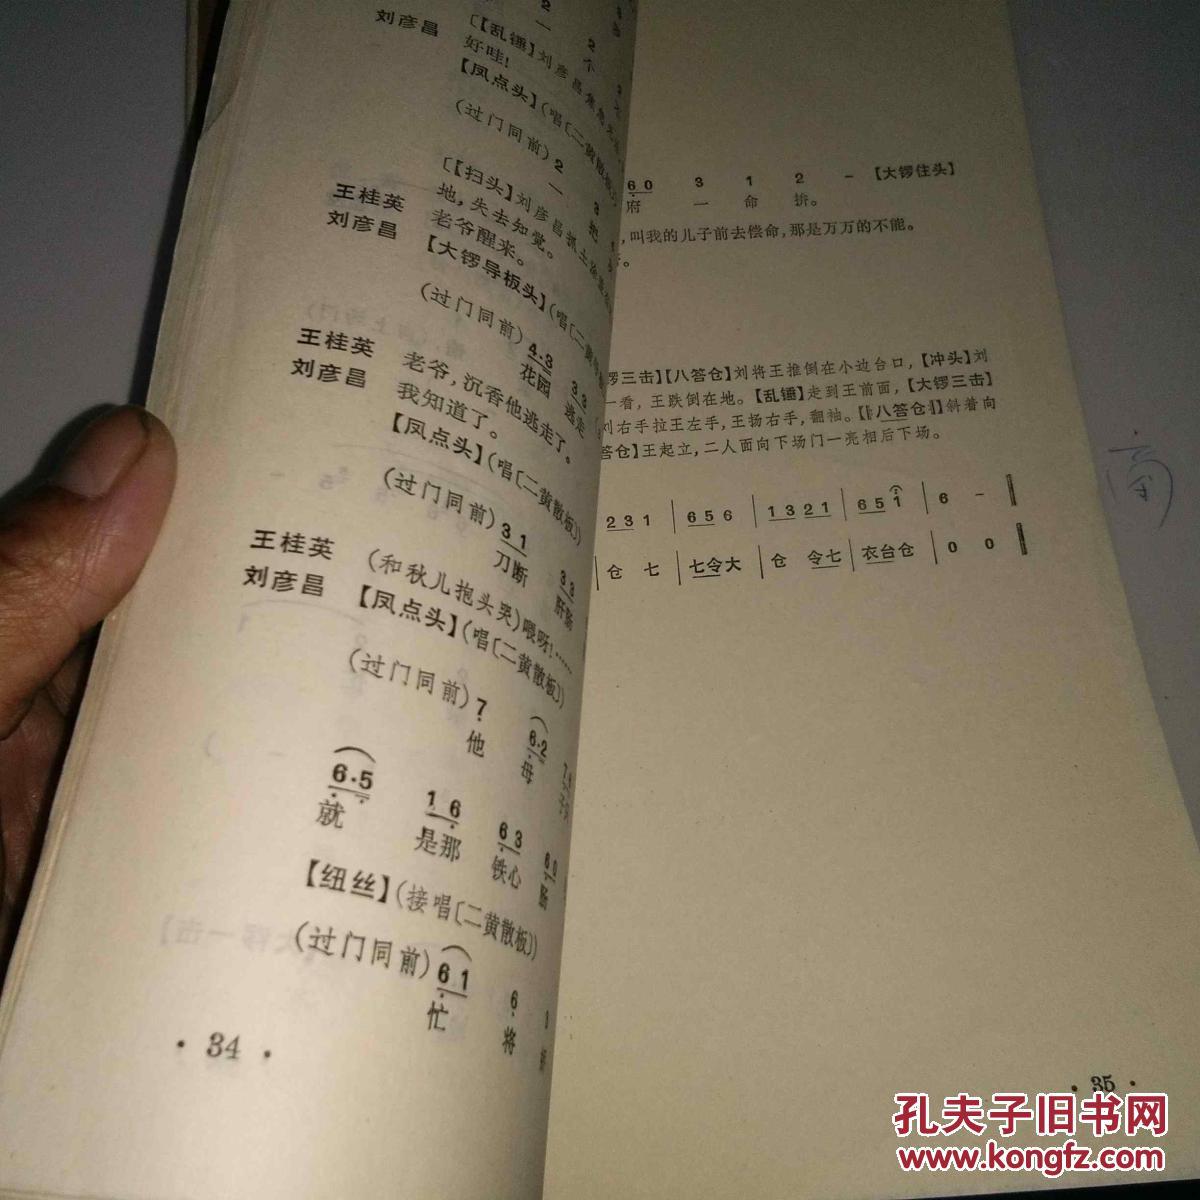 2 一 2 个
刘彦昌 〔【乱锤】刘彦昌焦急
好哇!
【凤点头】(唱〔二黄散板〕)
(过门同前) 2 一 3 把
〔【扫头】刘彦昌抓土
王桂英 地,失去知觉。
刘彦昌 老爷醒来。
【大锣导板头】(唱〔二黄
(过门同前) 4·3 3 3
花园 逃走
王桂英 老爷,沉香他逃走了。
刘彦昌 我知道了。
【凤点头】(唱〔二黄散板〕)
(过门同前) 3 1 3 3
刀断 肝肠
王桂英 (和秋儿抱头哭)喂呀!……
刘彦昌 【凤点头】(唱〔二黄散板〕)
(过门同前) 7 6·2
他 母
6·5 1 6 6 3 6 0
就 是那 铁心 肠
【纽丝】(接唱〔二黄散板〕)
(过门同前) 6 1 6
忙 将
· 34 ·
6 0 3 1 2 - 【大锣住头】
府 一 命 拚。
,叫我的儿子前去偿命,那是万万的不能。
锣三击】【八答仓】刘将王推倒在小边台口,【冲头】刘
一看,王跌倒在地。【乱锤】走到王前面,【大锣三击】
刘右手拉王左手,王扬右手,翻袖。【‖:八答仓:‖】斜着向
答仓】王起立,二人面向下场门一亮相后下场。
2 3 1 | 6 5 6 | 1 3 2 1 | 6 5 1 | 6 - ‖
仓 七 | 七令大 | 仓 令七 | 衣台仓 | 0 0 ‖
· 35 ·
孔夫子旧书网
www.kongfz.com